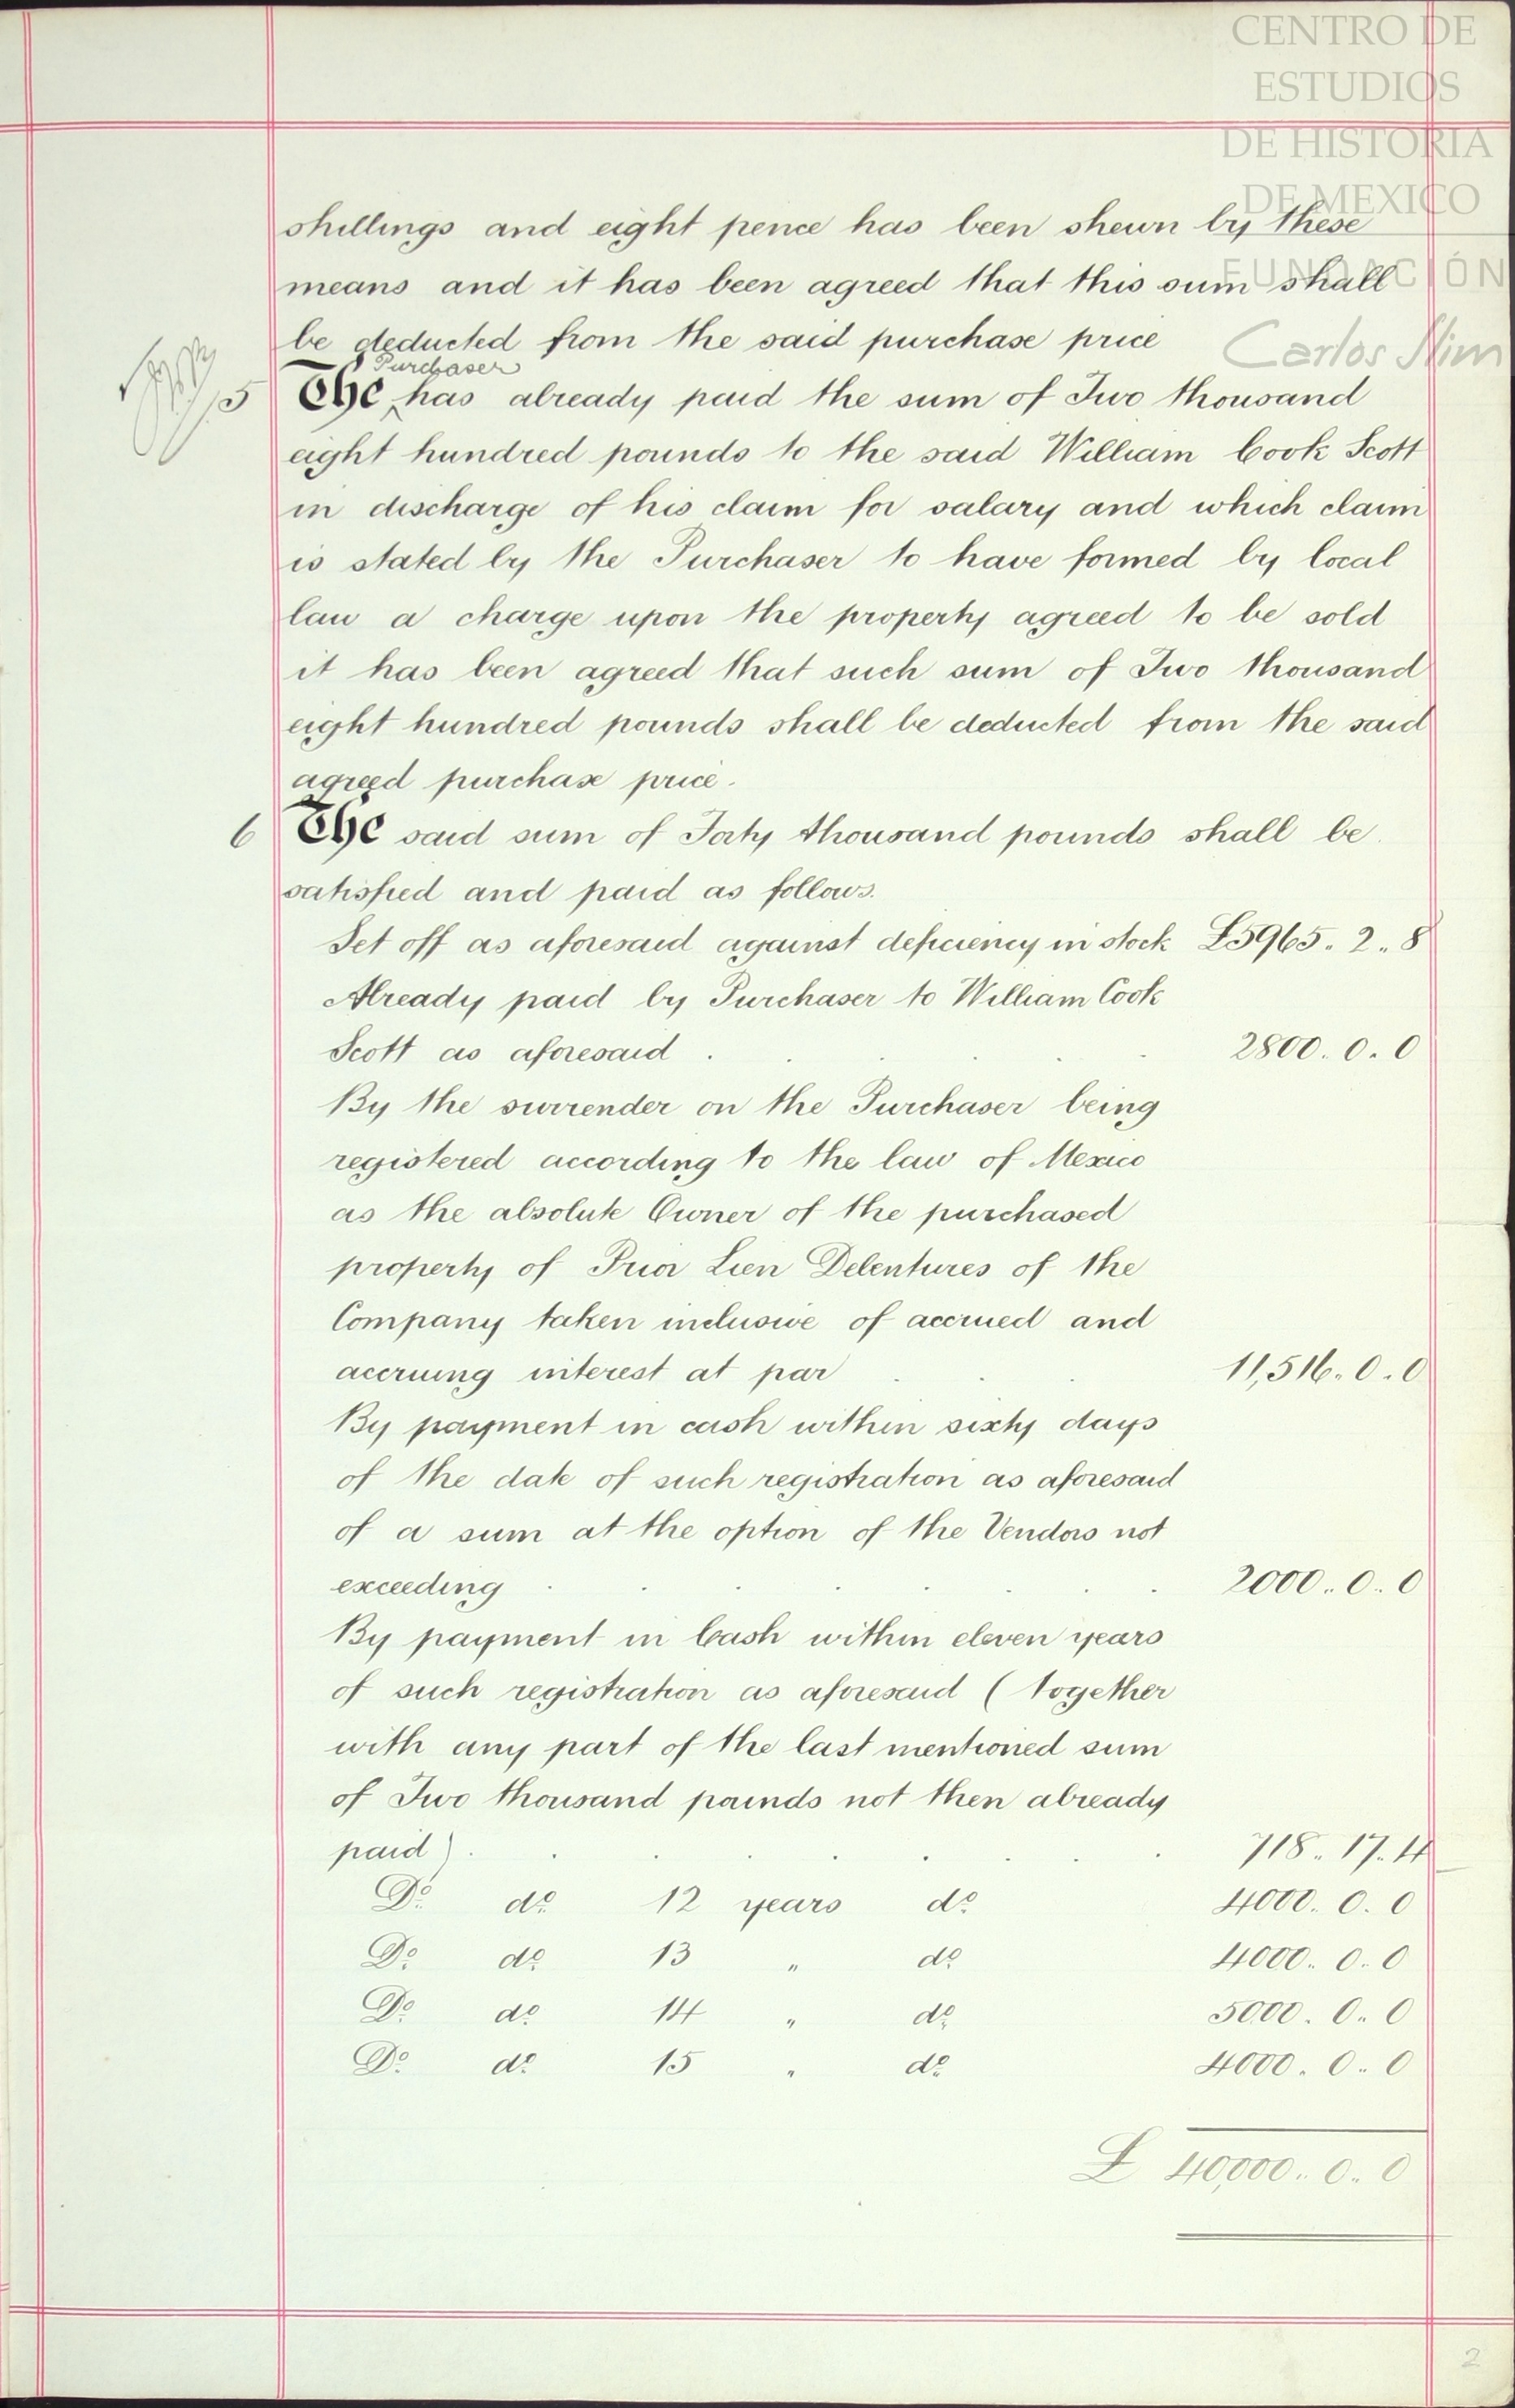 CENTRO DE
ESTUDIOS
DE HISTORIA
DE MEXICO
FUNDACIÓN
Carlos Slim
shillings and eight pence has been shewn by these
means and it has been agreed that this sum shall
be deducted from the said purchase price
Purchaser
5 The ^ has already paid the sum of Two thousand
eight hundred pounds to the said William Cook Scott
in discharge of his claim for salary and which claim
is stated by the Purchaser to have formed by local
law a charge upon the property agreed to be sold
it has been agreed that such sum of Two thousand
eight hundred pounds shall be deducted from the said
agreed purchase price.
6 The said sum of Forty thousand pounds shall be
satisfied and paid as follows.
Set off as aforesaid against deficiency in stock £5965.. 2.. 8
Already paid by Purchaser to William Cook
Scott as aforesaid . . . . 2800. 0. 0
By the surrender on the Purchaser being
registered according to the law of Mexico
as the absolute Owner of the purchased
property of Prior Lien Debentures of the
Company taken inclusive of accrued and
accruing interest at par . . . 11,516. 0. 0
By payment in cash within sixty days
of the date of such registration as aforesaid
of a sum at the option of the Vendors not
exceeding . . . . . . . 2000.. 0.. 0
By payment in Cash within eleven years
of such registration as aforesaid (together
with any part of the last mentioned sum
of Two thousand pounds not then already
paid) . . . . . . . . 718.. 17. 4
Do. do. 12 years do. 4000. 0. 0
Do. do. 13 " do. 4000.. 0.. 0
Do. do. 14 " do. 5000. 0.. 0
Do. do. 15 " do. 4000. 0.. 0
£ 40,000.. 0.. 0
2